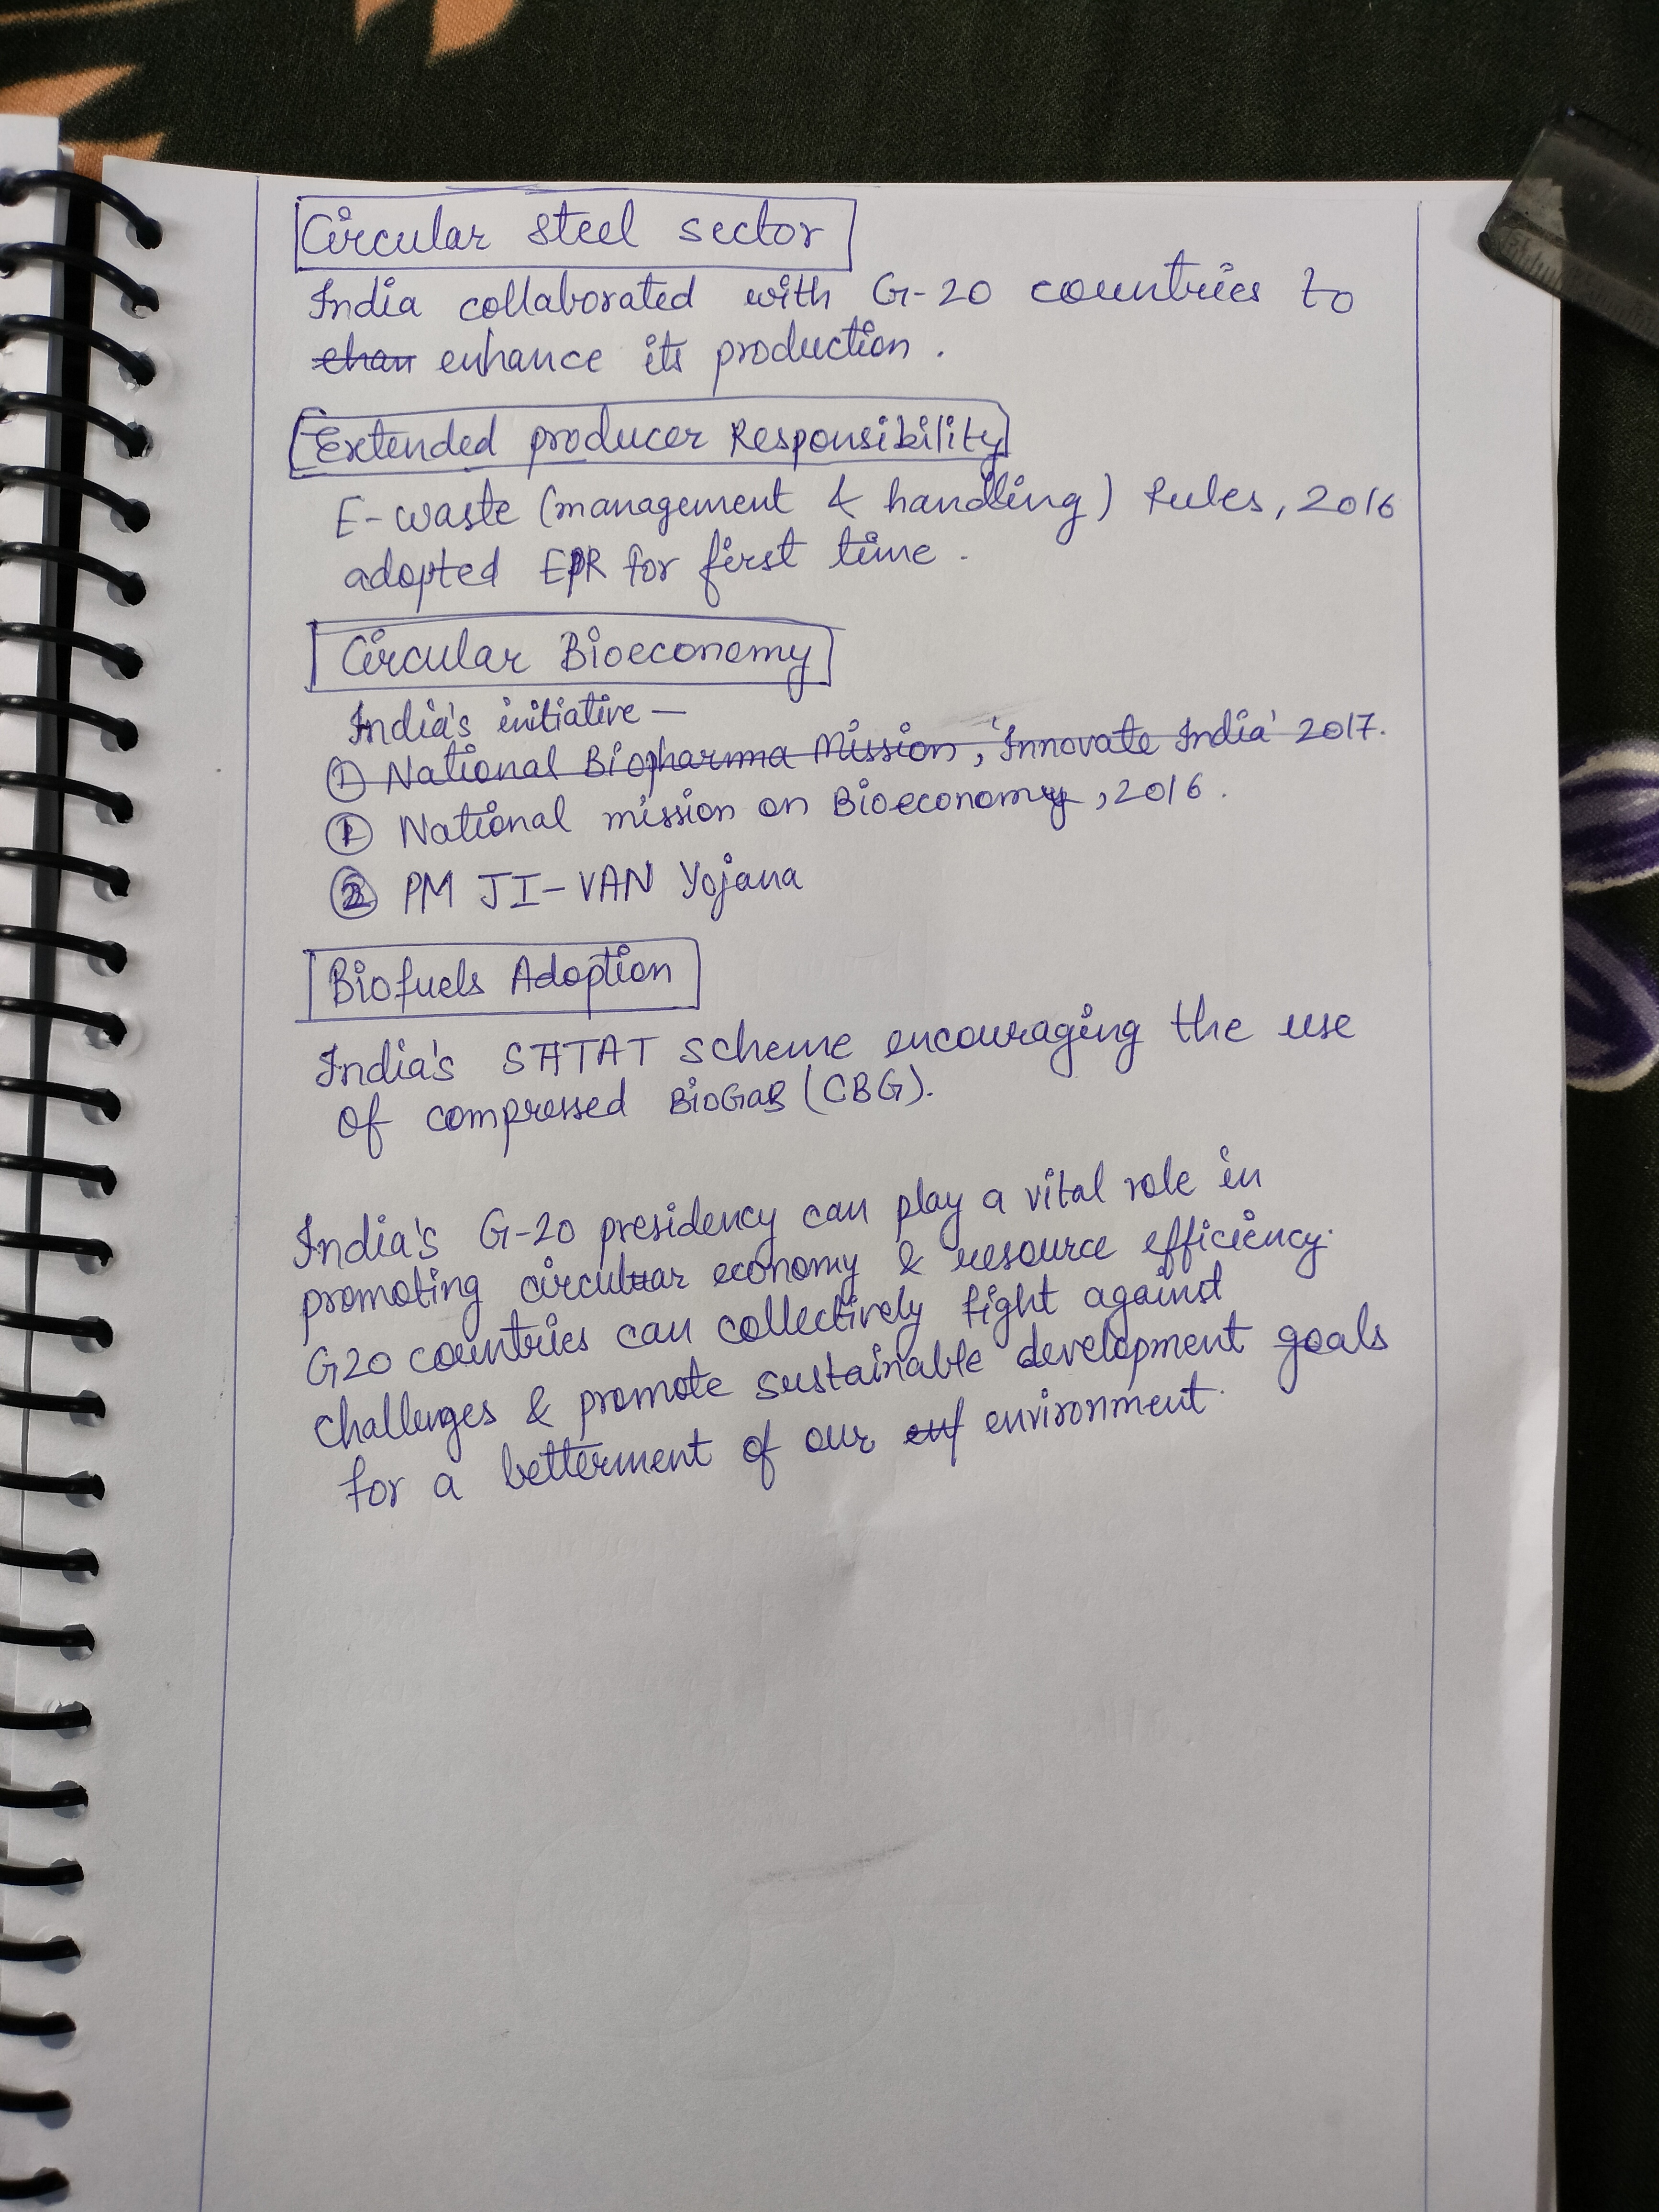 Circular steel sector
India collaborated with G-20 countries to
ehan enhance its production.
Extended producer Responsibility
E-waste (management & handling) Rules, 2016
adopted EPR for first time.
Circular Bioeconomy
India's initiative —
① National Biopharma Mission, 'Innovate India' 2017.
① National mission on Bioeconomy, 2016.
② PM JI-VAN Yojana
Biofuels Adoption
India's SATAT scheme encouraging the use
of compressed BioGas (CBG).
India's G-20 presidency can play a vital role in
promoting circular economy & resource efficiency.
G20 countries can collectively fight against
challenges & promote sustainable development goals
for a betterment of our environment.